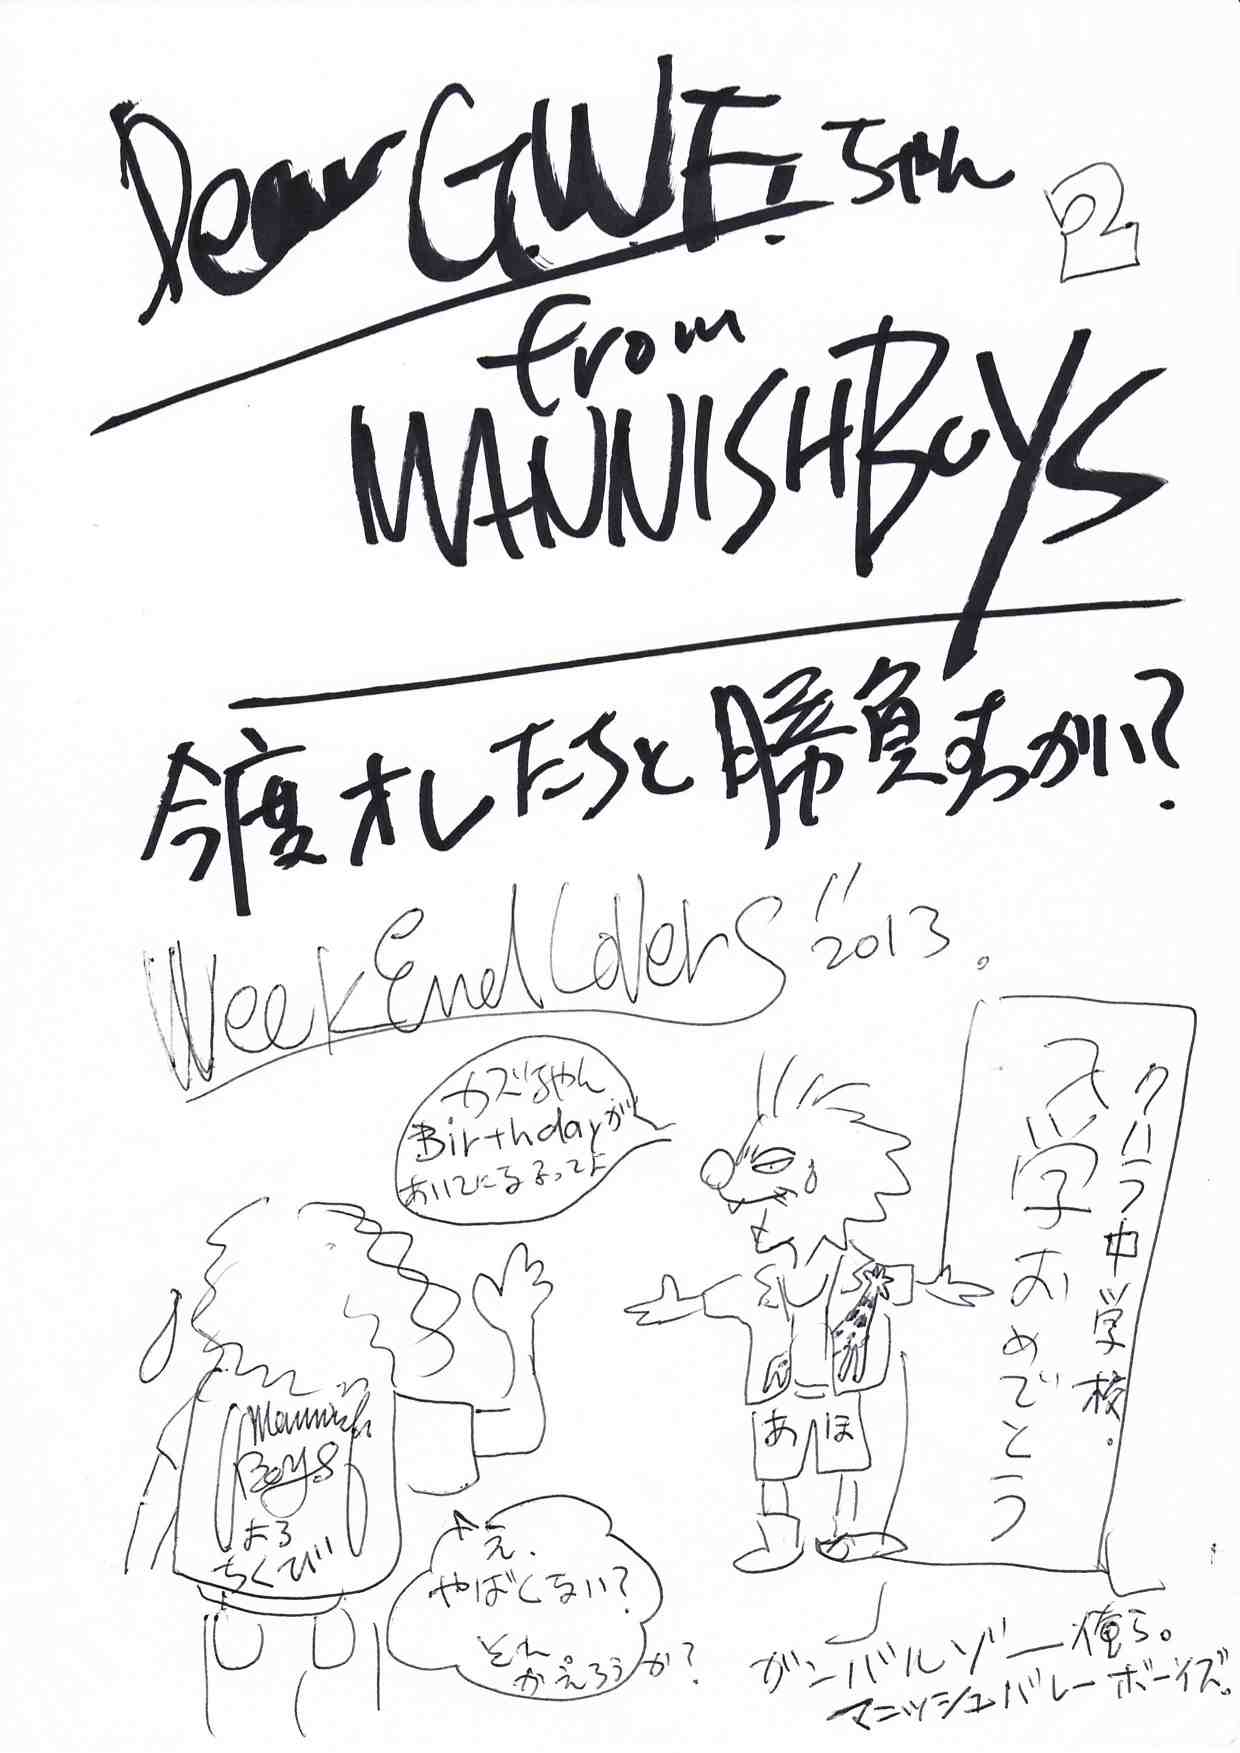 Dear G.W.F. ちゃん
from
MANNISH BOYS
今度オレたちと勝負すっかい?
WeekEnd Lovers "2013.
カズちゃん
Birthdayが
あいてになるよってよ
クハラ中学校.
入学おめでとう
あほ
Mannish
Boys
よろ
ちくび
え、
やばくない?
とん。
かえろうか?
ガンバルゾー俺ら。
マニッシュバレーボーイズ。